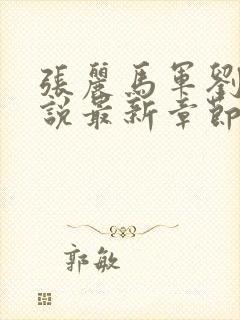 張麗馬軍劉
說最新章節
郭敏